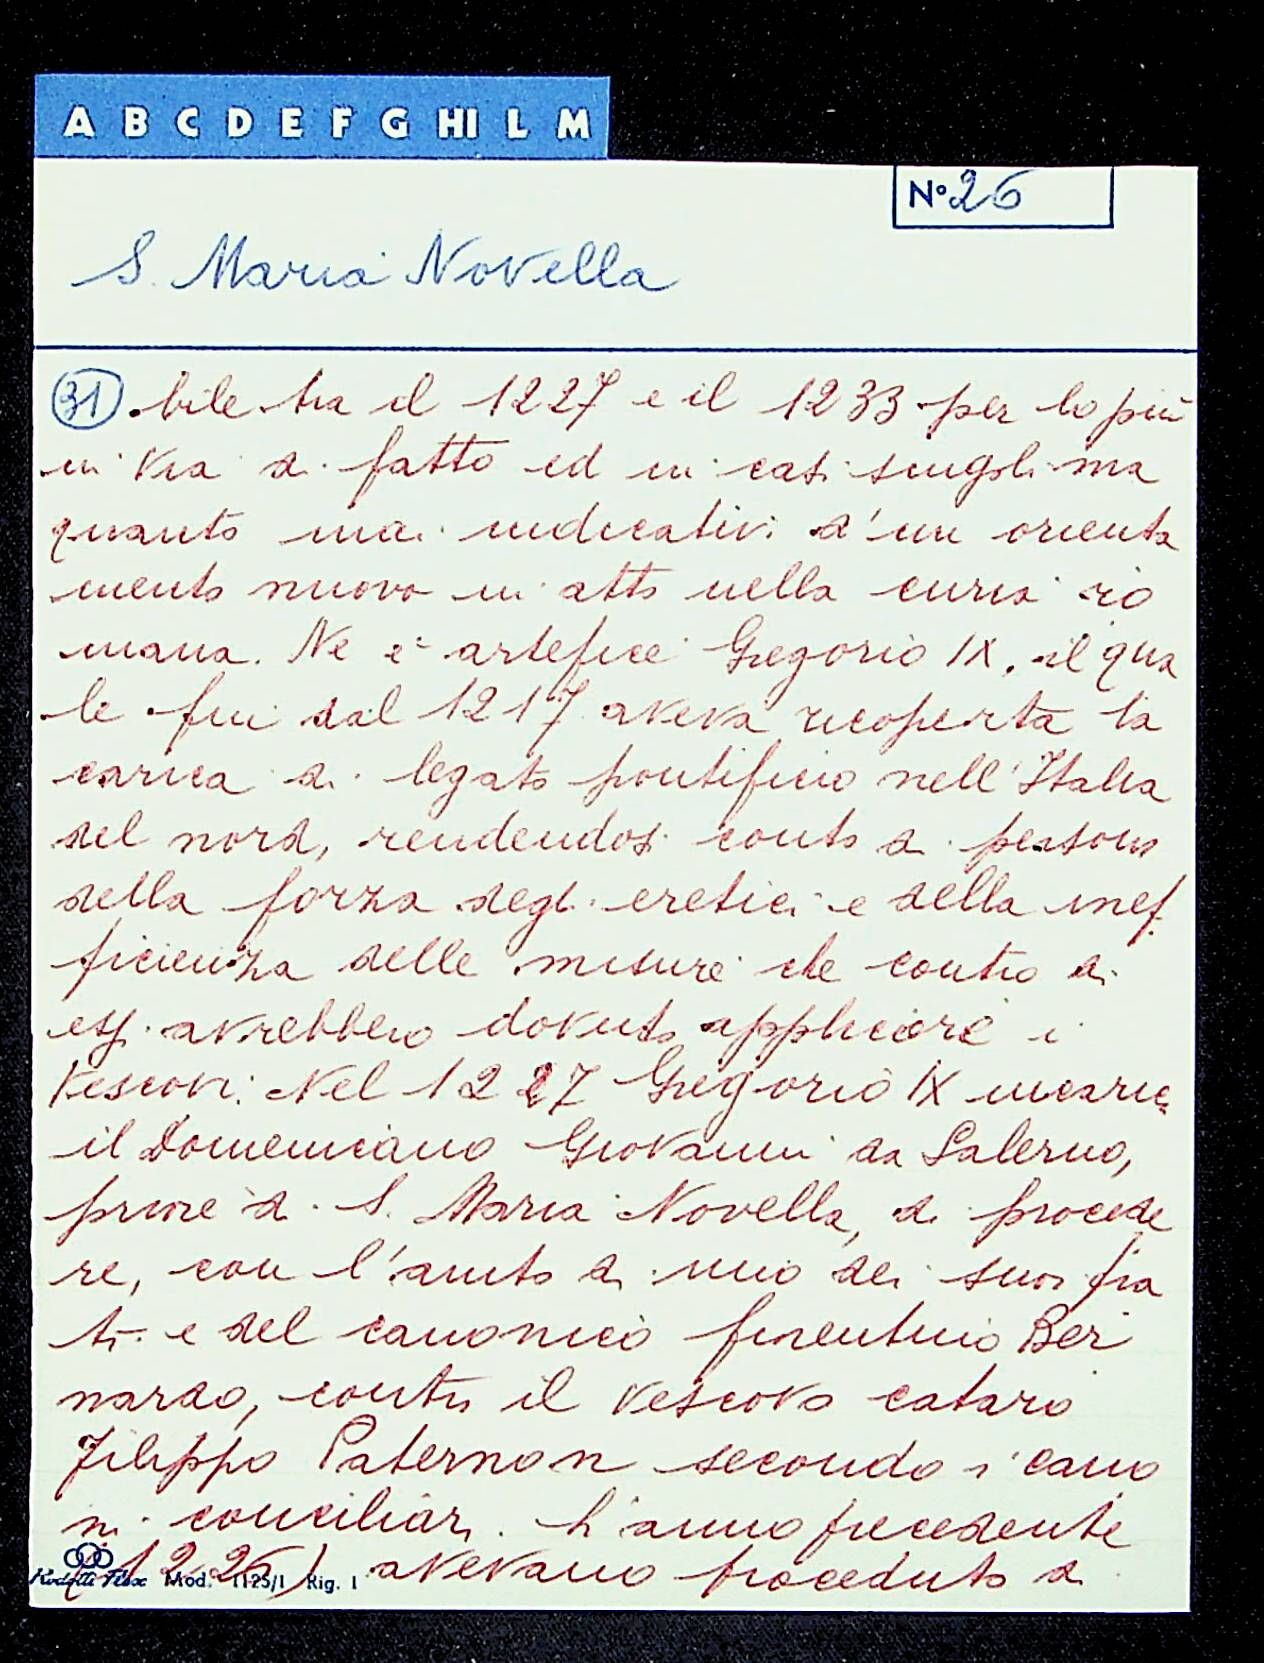 A B C D E F G HI L M
N° 26
S. Maria Novella
31 bile tra il 1227 e il 1233 per lo più
in via di fatto ed in casi singoli ma
quanto mai indicativi d'un orienta
mento nuovo in atto nella curia ro
mana. Ne è artefice Gregorio IX, il qua
le fin dal 1217 aveva ricoperta la
carica di legato pontificio nell'Italia
del nord, rendendosi conto di persona
della forza degli eretici e della inef
ficienza delle misure che contro di
essi avrebbero dovuto applicare i
Vescovi. Nel 1227 Gregorio IX incarica
il Domenicano Giovanni da Salerno,
priore di S. Maria Novella, di procede
re, con l'aiuto di uno dei suoi fra
ti e del canonico fiorentino Ber
nardo, contro il vescovo cataro
Filippo Paternon secondo i cano
ni conciliari. L'anno precedente
(1226) avevano proceduto a
Mod. 1125/1 Rig. 1